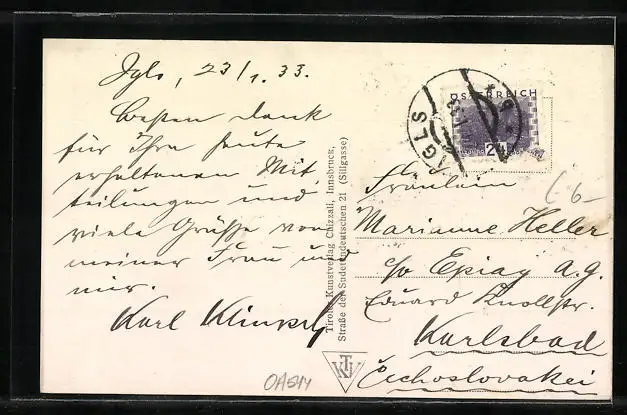 Igls, 23/1.33.
Besten Dank
für Ihre heute
erhaltenen Mit,
teilungen und
viele Grüße von
meiner Frau und
mir.
Karl
Tiroler Kunstverlag Chizzali, Innsbruck,
Straße der Sudetendeutschen 21 (Sillgasse)
TKV
OA544
IGLS
ÖSTERREICH
24
Fräulein
Marianne Heller
c/o Epiag A.G.
Eduard Knollstr.
Karlsbad
Čechoslovakei
6-